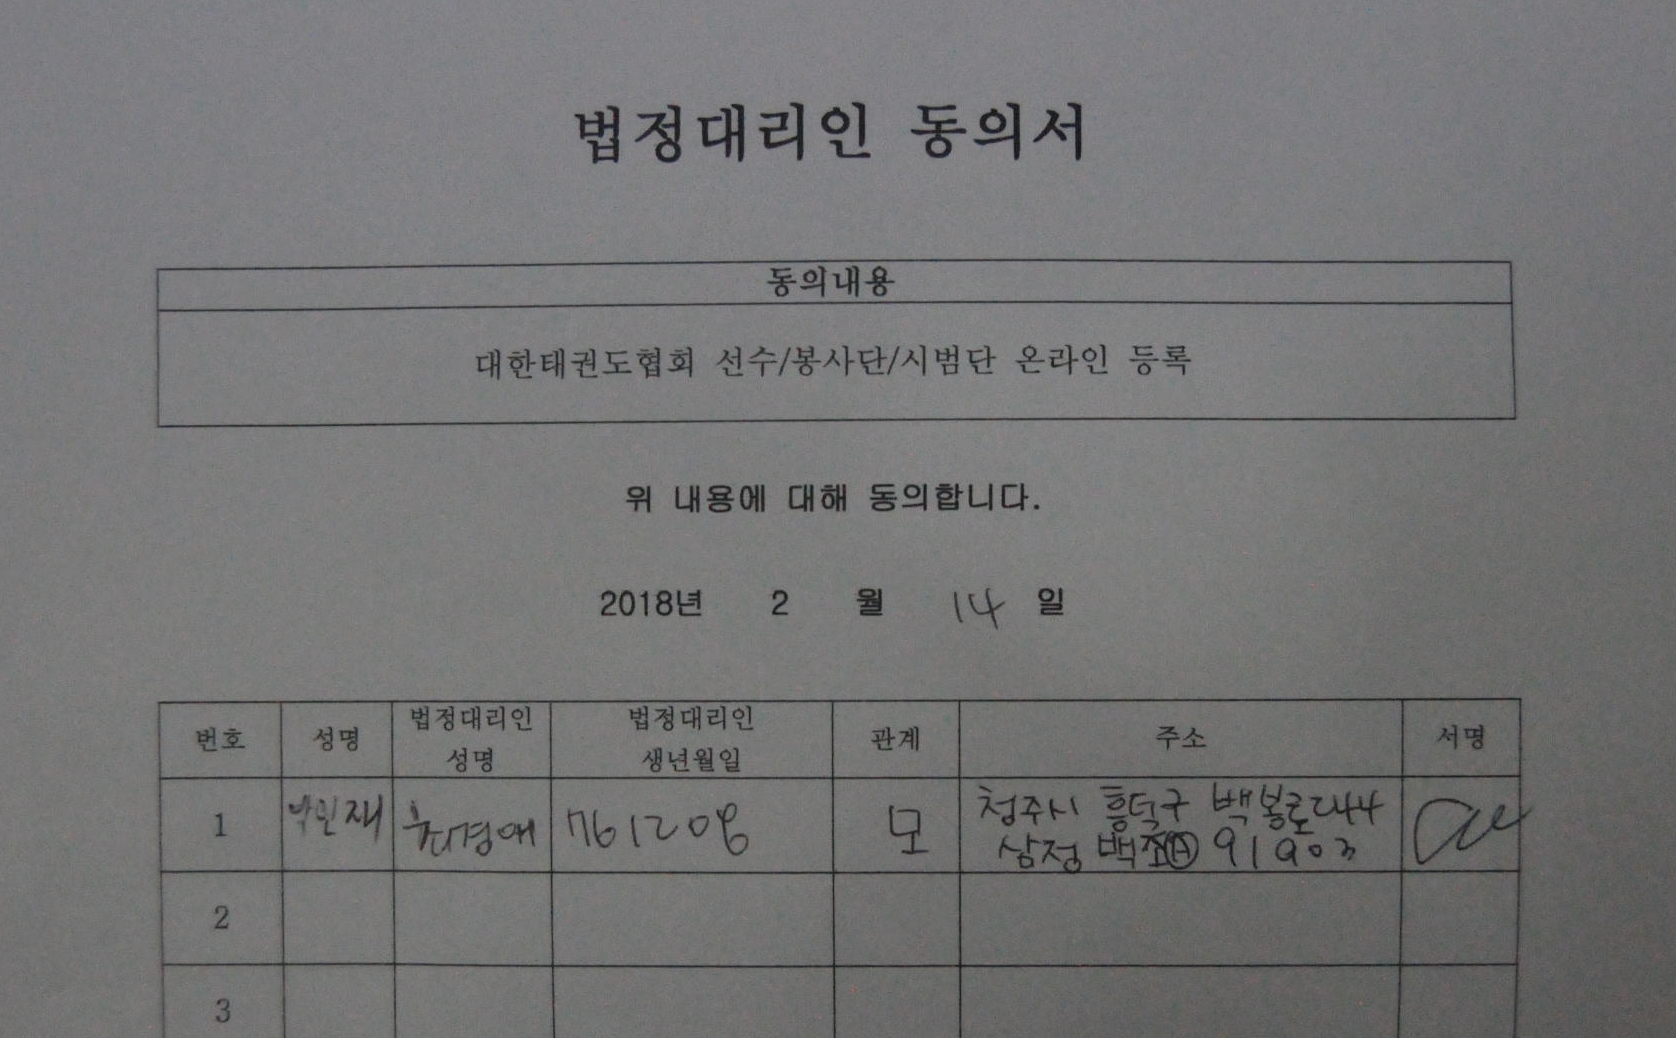 법정대리인 동의서
동의내용
대한태권도협회 선수/봉사단/시범단 온라인 등록
위 내용에 대해 동의합니다.
2018년 2 월 14 일
번호 성명 법정대리인 성명 법정대리인 생년월일 관계 주소 서명
1 박인재 최경애 761208 모 청주시 흥덕구 백봉로244
삼정 백조Ⓐ 91903
2
3